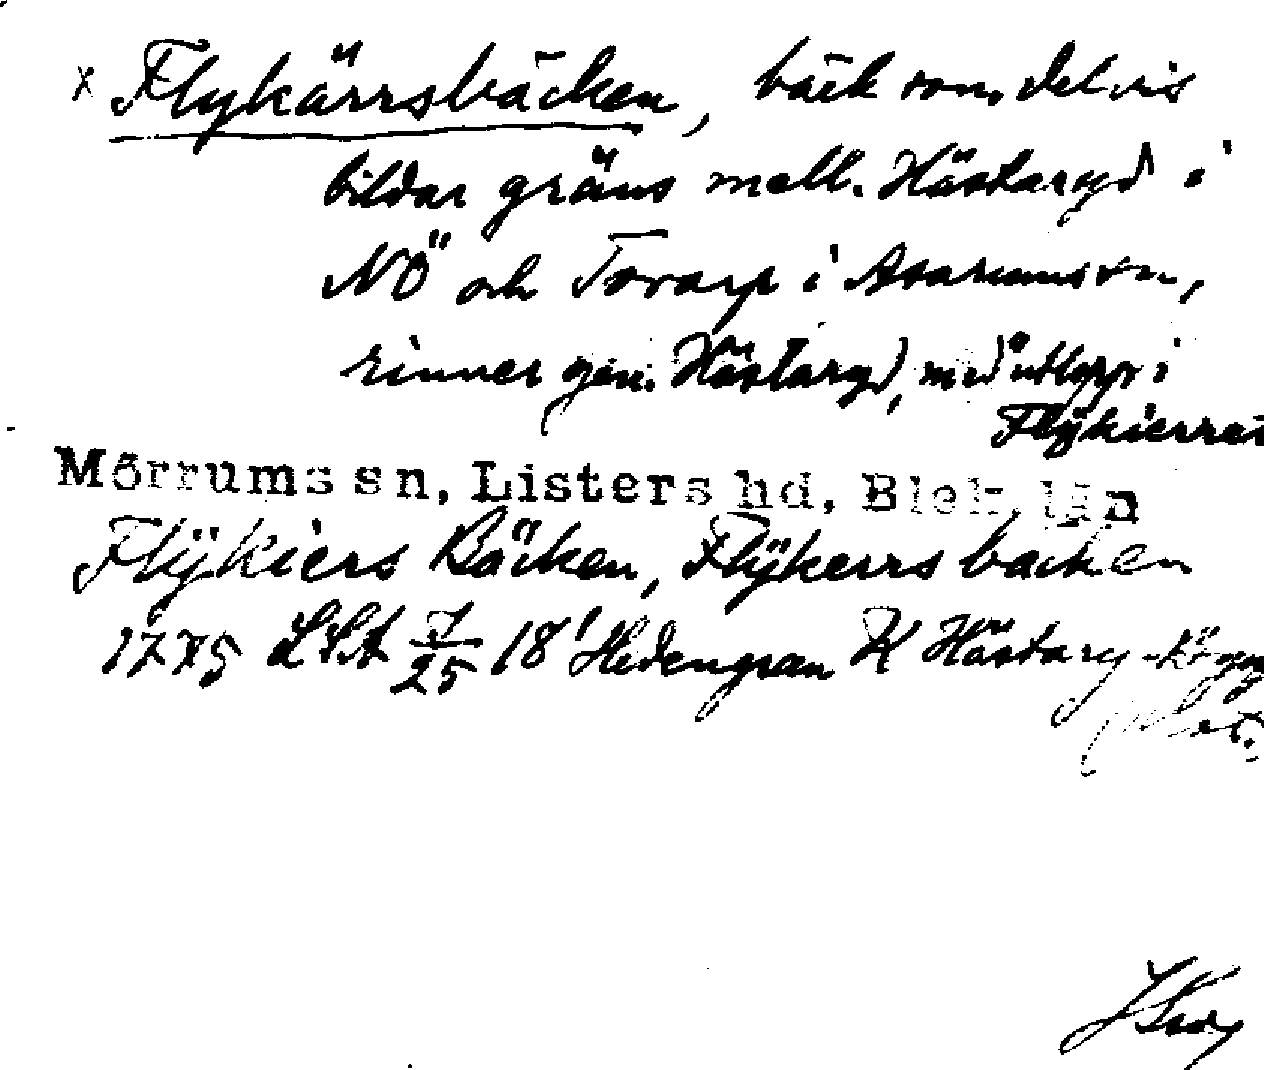 x Flykärrsbäcken, bäck som delvis
bildar gräns mell. Hästaryd i
NÖ och Torarp i Asarums sn,
rinner gen. Hästaryd, med utlopp i
Flÿkierret
Mörrums sn, Listers hd, Blek. län
Flÿkiers Bäcken, Flÿkerrs backen
1775 LSA 18 Hedengran K Hästary